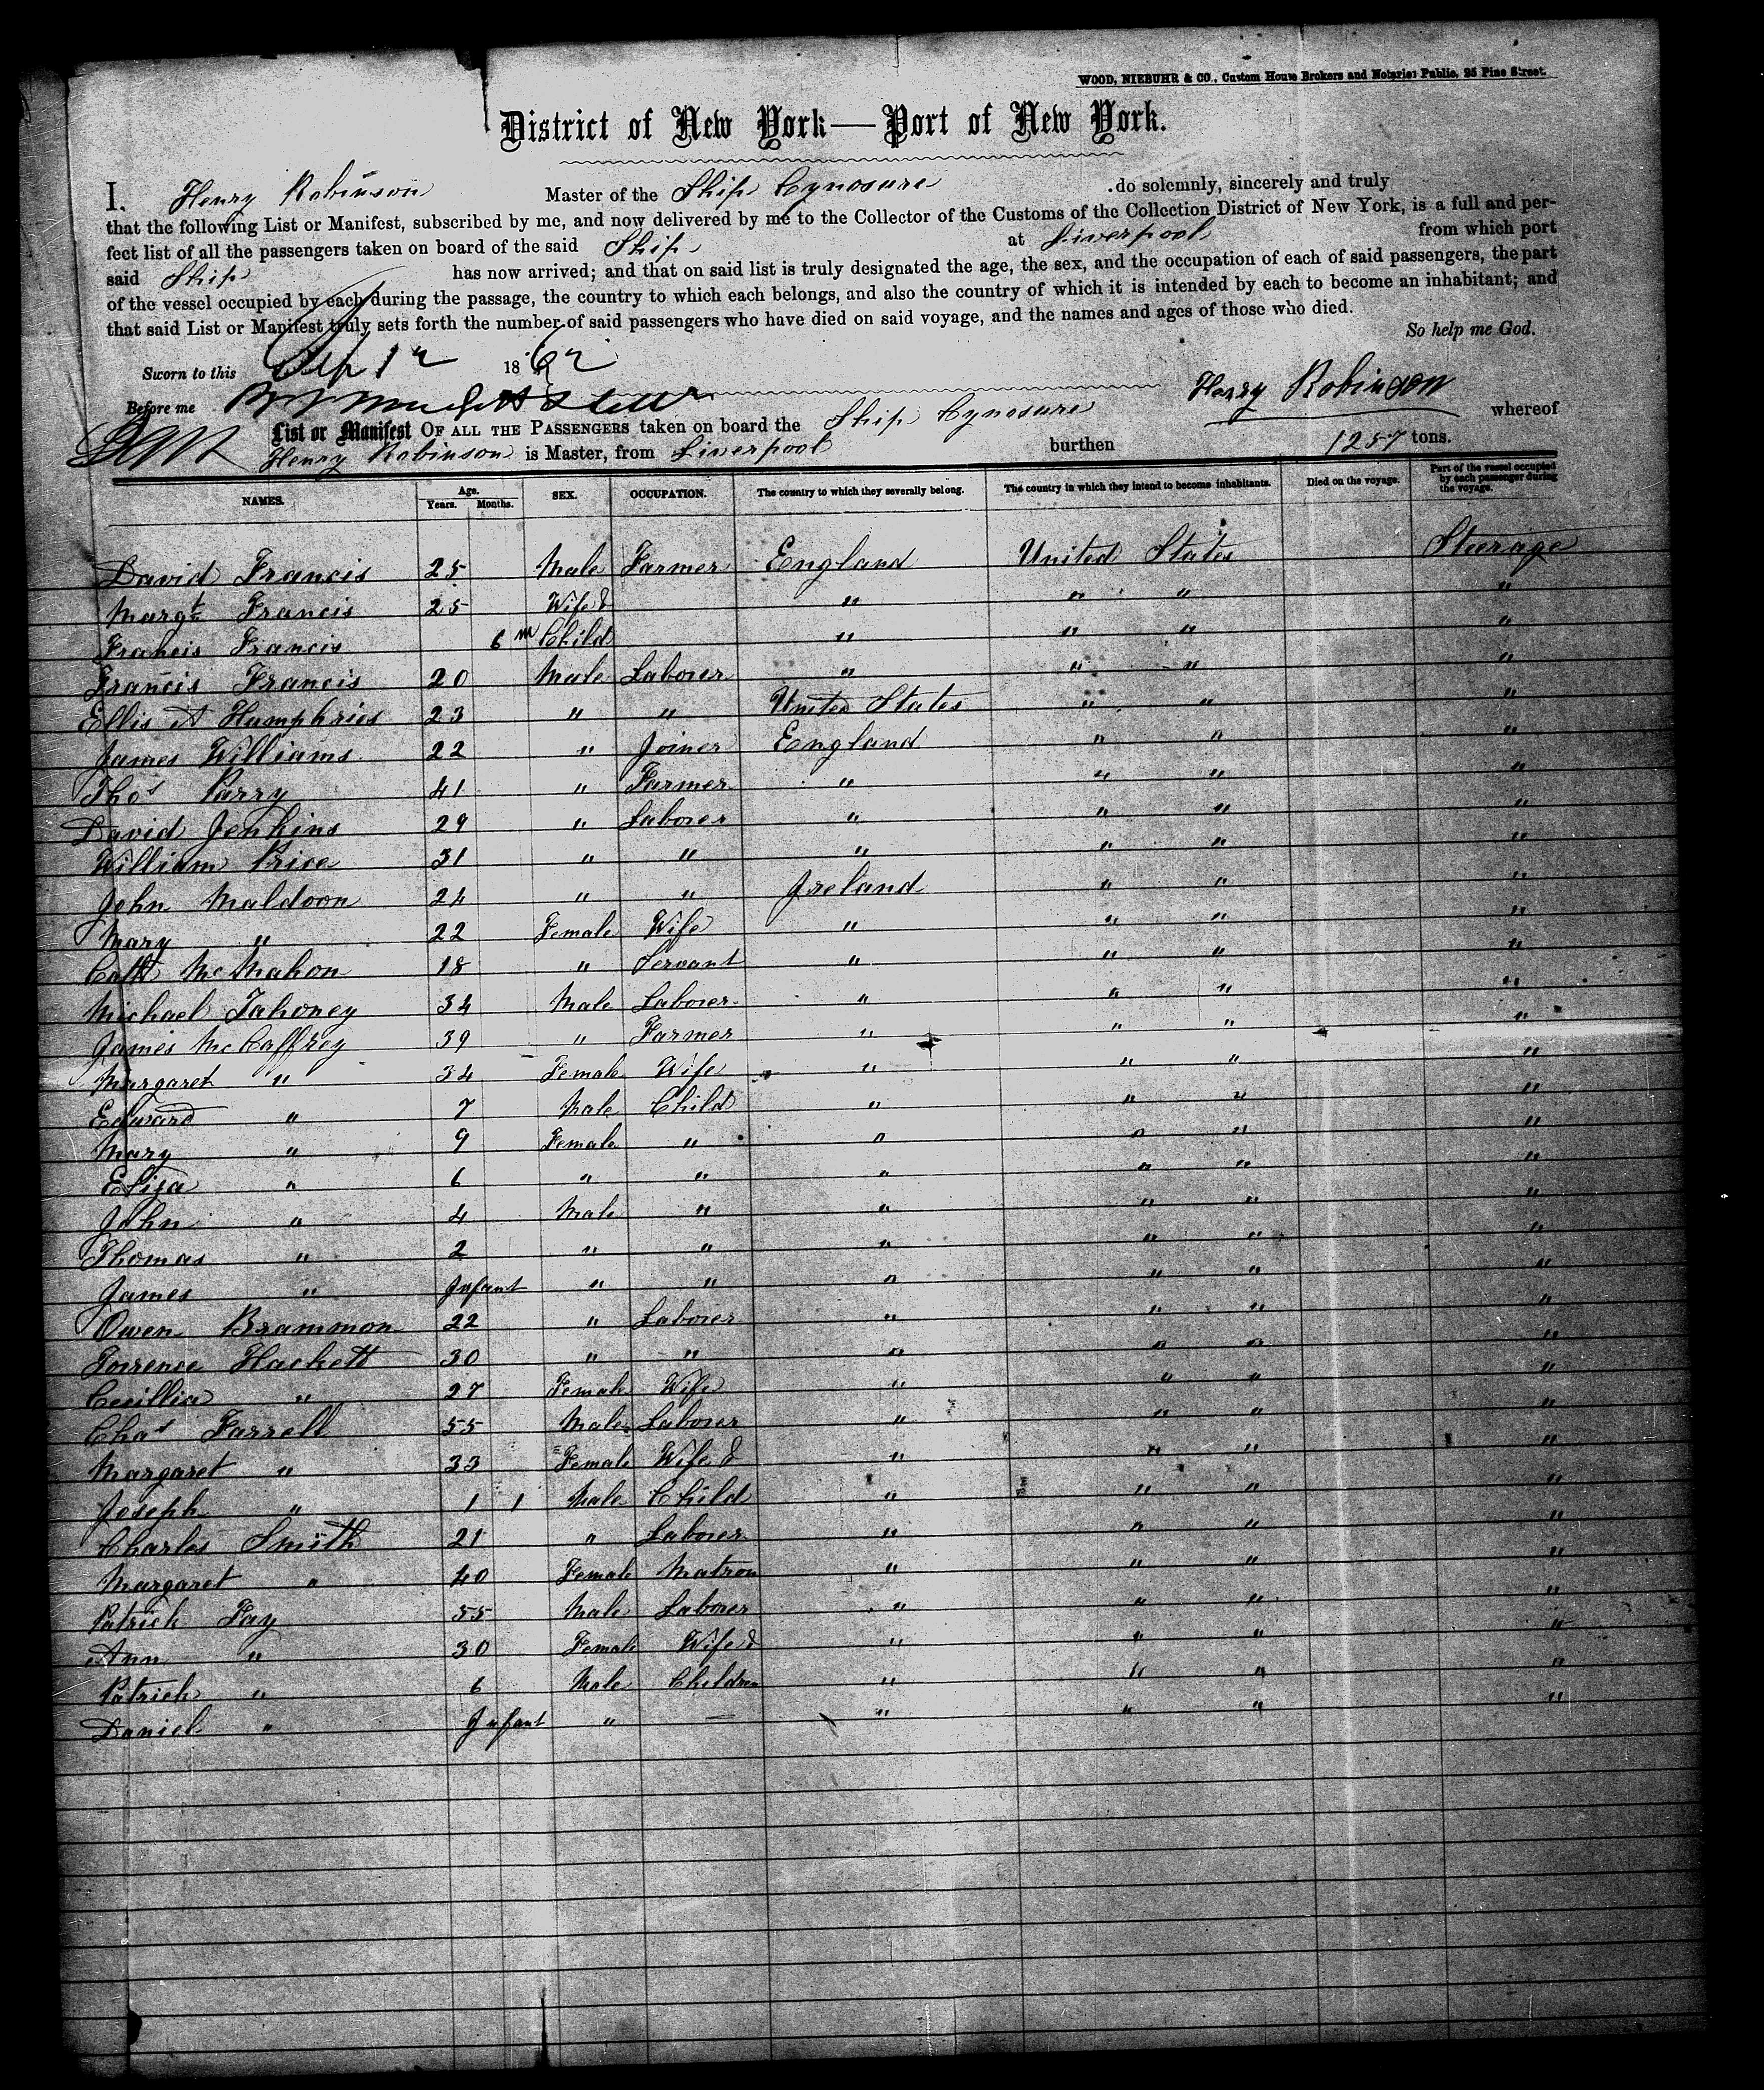 WOOD, NIEBUHR & CO., Custom House Brokers and Notaries Public, 25 Pine Street.
District of New York—Port of New York.
I, Henry Robinson Master of the Ship Cynosure do solemnly, sincerely and truly
that the following List or Manifest, subscribed by me, and now delivered by me to the Collector of the Customs of the Collection District of New York, is a full and per-
fect list of all the passengers taken on board of the said Ship at Liverpool from which port
said Ship has now arrived; and that on said list is truly designated the age, the sex, and the occupation of each of said passengers, the part
of the vessel occupied by each during the passage, the country to which each belongs, and also the country of which it is intended by each to become an inhabitant; and
that said List or Manifest truly sets forth the number of said passengers who have died on said voyage, and the names and ages of those who died.
So help me God.
Sworn to this Sep 12 1862
Henry Robinson
Before me
List or Manifest OF ALL THE PASSENGERS taken on board the Ship Cynosure whereof
Henry Robinson is Master, from Liverpool burthen 1257 tons.
NAMES. Age. Years. Months. SEX. OCCUPATION. The country to which they severally belong. The country in which they intend to become inhabitants. Died on the voyage. Part of the vessel occupied by each passenger during the voyage.
David Francis 25 Male Farmer England United States Steerage
Margt Francis 25 Wife & " " " "
Francis Francis 6 m Child " " " "
Francis Francis 20 Male Laborer " " " "
Ellis A Humphries 23 " " United States " " "
James Williams 22 " Joiner England " " "
Thos Parry 41 " Farmer " " " "
David Jenkins 29 " Laborer " " " "
William Price 31 " " " " " "
John Maldoon 24 " " Ireland " " "
Mary " 22 Female Wife " " " "
Cath McMahon 18 " Servant " " " "
Michael Tahoney 34 Male Laborer " " " "
James McCaffrey 39 " Farmer " " " "
Margaret " 34 Female Wife " " " "
Edward " 7 Male Child " " " "
Mary " 9 Female " " " " "
Eliza " 6 " " " " " "
John " 4 Male " " " " "
Thomas " 2 " " " " " "
James " Infant " " " " " "
Owen Brammon 22 " Laborer " " " "
Torrence Hackett 30 " " " " " "
Cecillia " 27 Female Wife " " " "
Chas Farrell 55 Male Laborer " " " "
Margaret " 33 Female Wife & " " " "
Joseph " 1 1 Male Child " " " "
Charles Smith 21 " Laborer " " " "
Margaret " 40 Female Matron " " " "
Patrick Fay 55 Male Laborer " " " "
Ann " 30 Female Wife & " " " "
Patrick " 6 Male Children " " " "
Daniel " Infant " — " " " "